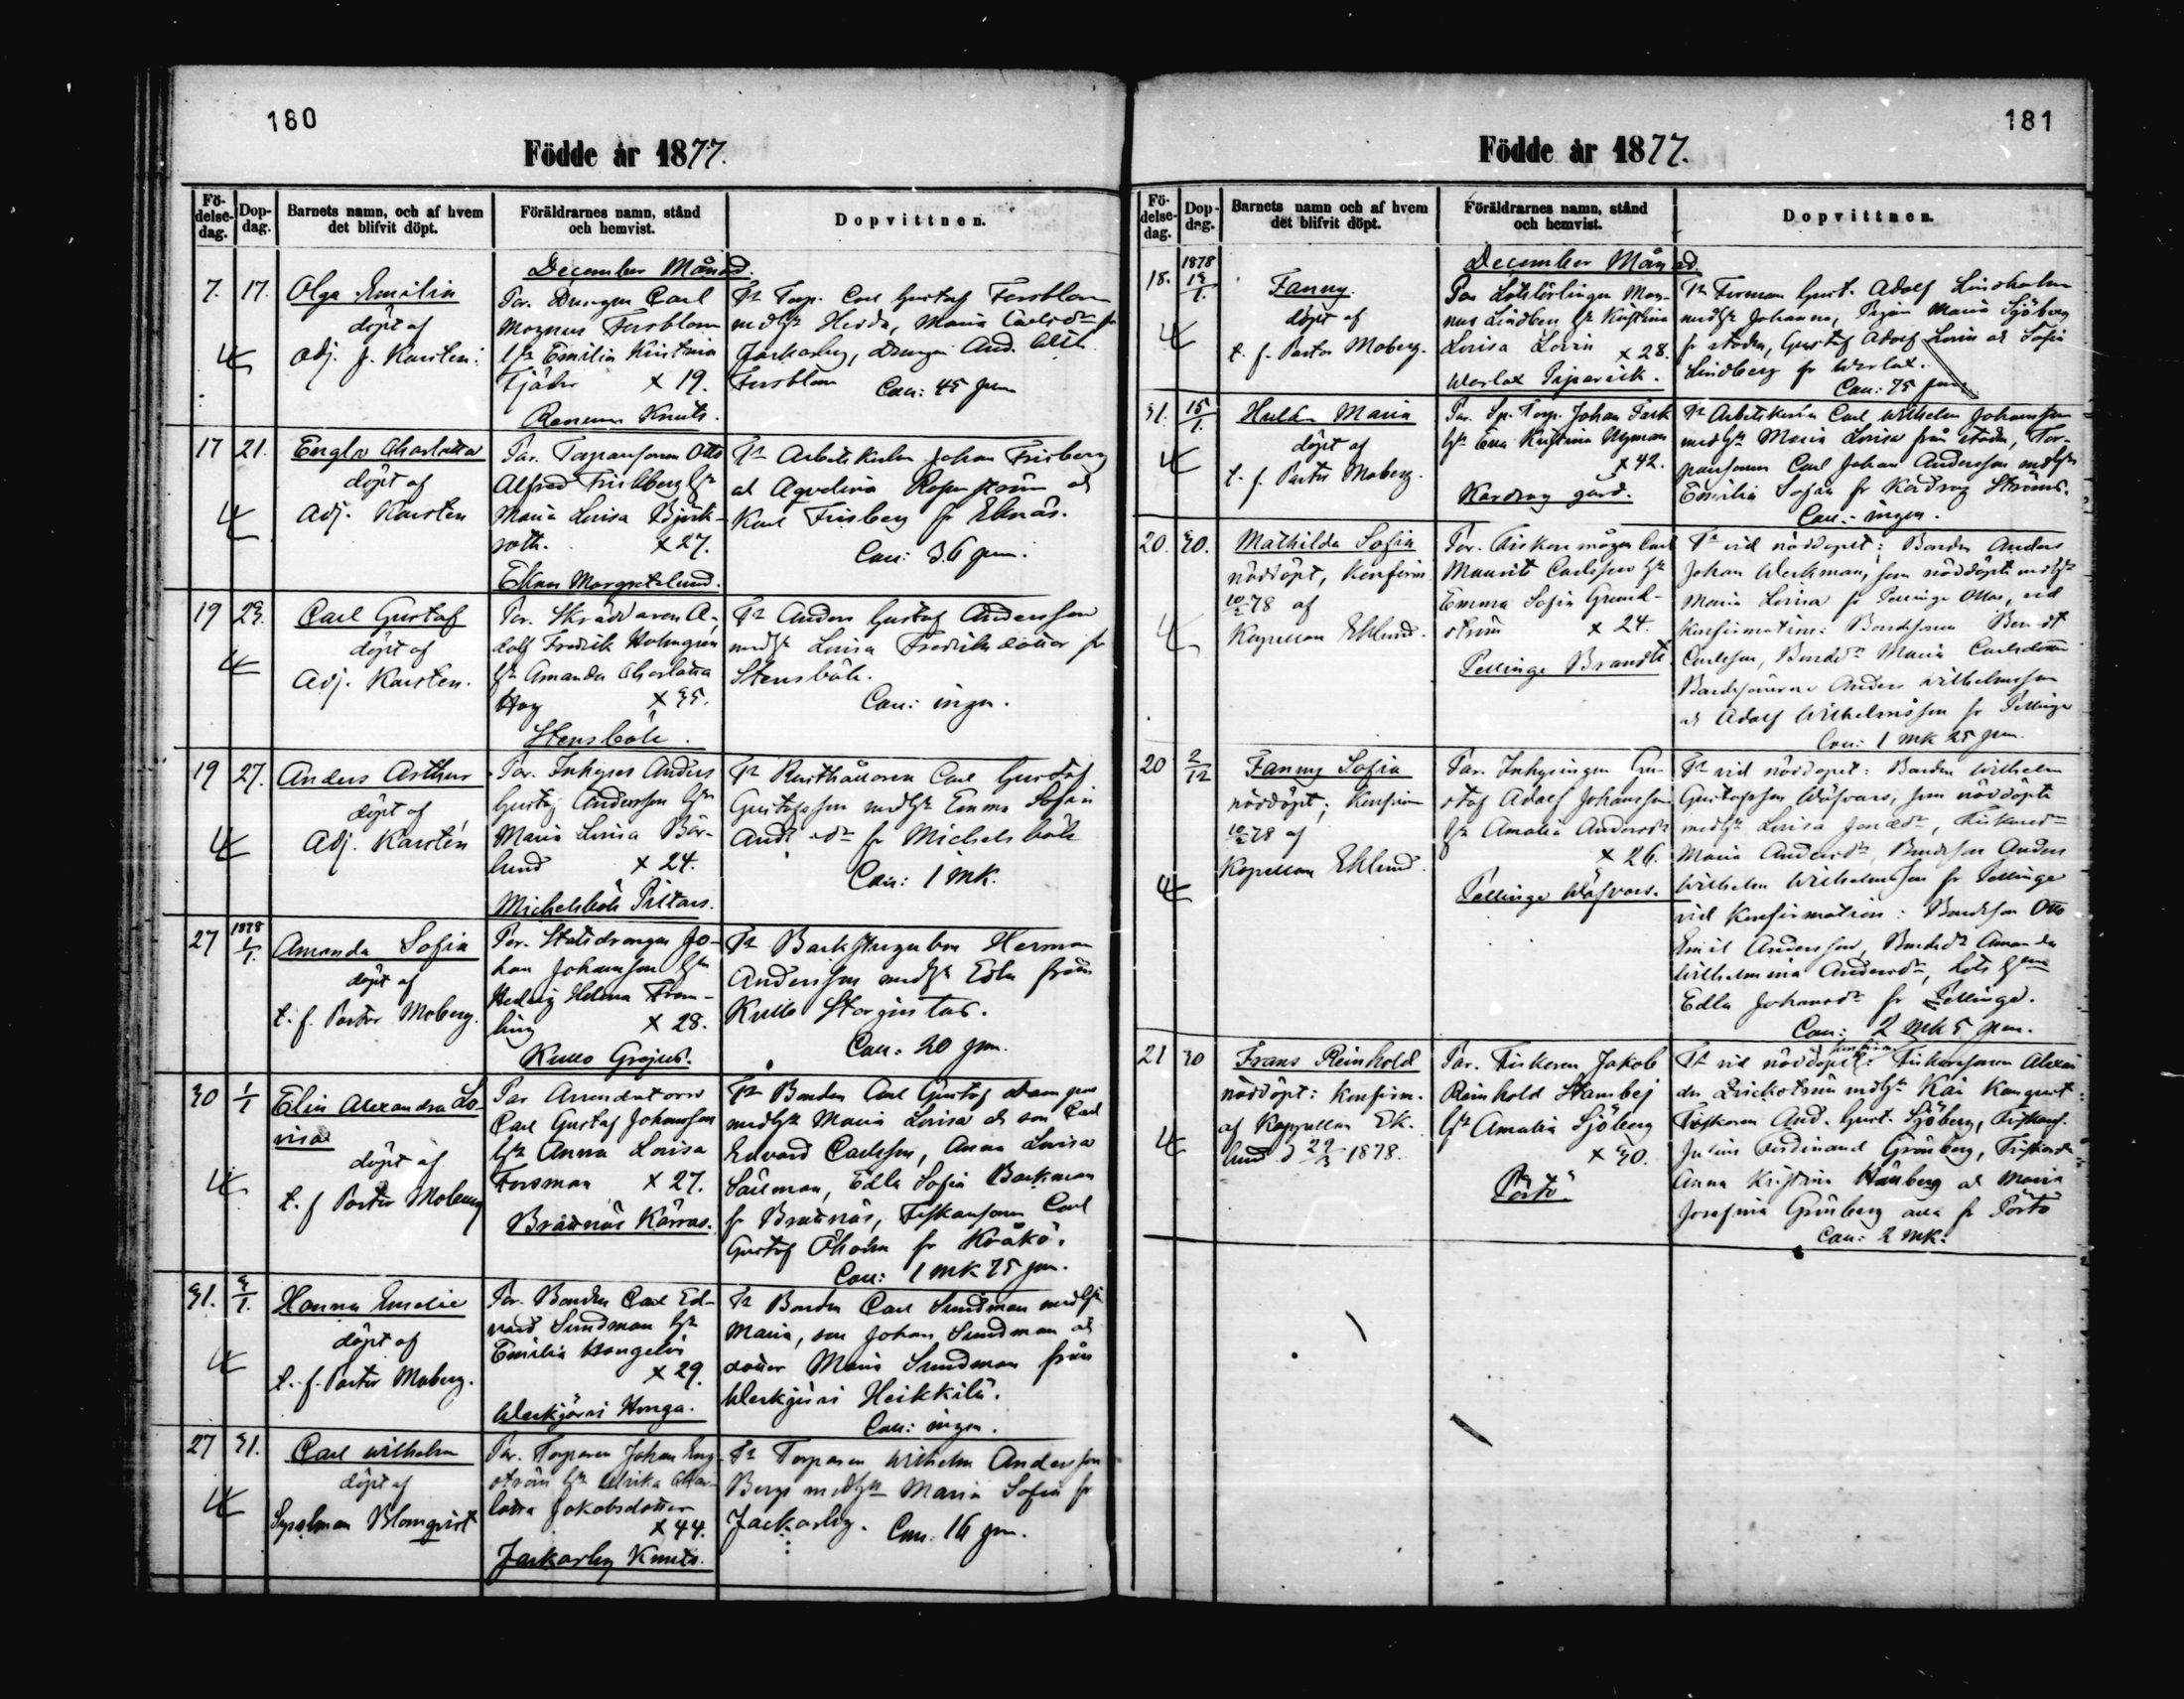 180
Födde år 1877.
Fö-
delse-
dag.
Dop-
dag.
Barnets namn, och af hvem
det blifvit döpt.
Föräldrarnes namn, stånd
och hemvist.
Dopvittnen.
December Månad.
7. 17.
Olga Emilia
döpt af
Adj. J. Karsten.
Par. Drengen Carl
Magnus Forsblom
hst Emilia Kristina
Fjäder x 19.
Knuts.
Fr Torp. Carl Gustaf Forsblom
medhst Hedda, Maria Carlsdr fr
Jackarby, drengen And. Wilh.
Forsblom Cau: 45 pen
17 21.
Engla Charlotta
döpt af
Adj. Karsten
Par. Torparsonen Otto
Alfred Frickberg hst
Maria Lovisa Björk-
roth. x 27.
Eknäs Margretelund.
Fr Arbetskarlen Johan Frisberg
ock Aqvelina Rosenström ock
Karl Frisberg fr Eknäs.
Cau: 36 pen.
19 23.
Carl Gustaf
döpt af
Adj. Karsten.
Par. Skräddaren A-
dolf Fredrik Holmgren
hst Amanda Charlotta
Hög x 35.
Stensböle.
Fr Anders Gustaf Andersson
medhst Lovisa Fredriksdotter fr
Stensböle.
Cau: ingen.
19 27.
Anders Arthur
döpt af
Adj. Karstén
Par. Inhyses Anders
Gustaf Andersson hst
Maria Lovisa Bär-
lund x 24.
Michelsböle Pittars.
Fr Rusthållaren Carl Gustaf
Gustafsson medhst Emma Sofia
Andersdr fr Michelsböle
Cau: 1 mk.
27 1878
1/1.
Amanda Sofia
döpt af
t. f. Pastor Moberg.
Par. Statsdrengen Jo-
han Johansson hst
Hedvig Helena From-
ling x 28.
Kullo Grejus.
Fr Backstugubon Herman
Andersson medhst Edla från
Kullo Storgustas.
Cau: 20 pen.
30 1/1
Elin Alexandra Lo-
visa
döpt af
t. f Pastor Moberg
Par Arrendatorn
Carl Gustaf Johansson
hst Anna Lovisa
Forsman x 27.
Brännäs Kärras.
Fr Bonden Carl Gustaf
medhst Maria Lovisa ock son Carl
Edvard Carlsson, Anna Lovisa
Edla Sofia Backman
fr Brännäs, Fiskarsonen Carl
Gustaf fr Kråkö.
Cau: 1 mk 75 pen.
31. 3/1.
Hanna Emelie
döpt af
t. f. Pastor Moberg.
Par. Bonden Carl Ed-
vard Sundman hst
Emilia Hongelin
x 29.
Werkjärvi Honga.
Fr Bonden Carl Sundman medhst
Maria, son Johan Sundman ock
dotter Maria Sundman från
Werkjärvi Heikkilä.
Cau: ingen.
27 31.
Carl Wilhelm
döpt af
Blomqvist
Par. Torparen Johan Eng-
ström hst Ulrika Char-
lotta Jakobsdotter
x 44.
Jackarby Knuts.
Fr Torparen Wilhelm Andersson
Berge medhst Maria Sofia fr
Jackarby. Cau: 16 pen.
181
Födde år 1877.
Fö-
delse-
dag.
Dop-
dag.
Barnets namn och af hvem
det blifvit döpt.
Föräldrarnes namn, stånd
och hemvist.
Dopvittnen.
December Månad.
1878
18. 13/1.
Fanny.
döpt af
t. f. Pastor Moberg.
Par Lotslärlingen Mag-
nus Lindberg hst Kristina
Lovisa Lovin x 28.
Werlax Piparvik.
Fr Forman Gust. Adolf Lindholm
medhst Johanna, Pigan Maria Sjöberg
fr staden, Gustaf Adolf Lovin ock Sofia
Lindberg fr Werlax.
Cau: 75 pen.
31. 15/1.
Hulda Maria
döpt af
t. f. Pastor Moberg.
Par. Sp. Torp. Johan Fack
hst Eva Kristina Nyman
x 42.
Kardrag gård.
Fr Arbetskarlen Carl Wilhelm Johansson
medhst Maria Lovisa från staden, Tor-
parsonen Carl Johan Andersson medhst
Emilia Sofia fr Kardrag Ströms.
Cau: ingen.
20. 30.
Mathilda Sofia
nöddöpt, konfirm
10/2 78 af
Kapellan Eklund.
Par. Fiskaremågen Carl
Maurits Carlsson hst
Emma Sofia Grund-
ström x 24.
Pellinge Brandts.
Fr vid nöddopet: Bonden Anders
Johan Werkman, som nöddöpte medhst
Maria Lovisa fr Pellinge Ottas, vid
konfirmation: Bondesonen Berndt
Carlsson, Bondedr Maria Carlsdotter
Bondesönerne Anders Wilhelmsson
ock Adolf Wilhelmsson fr Pellinge
Cau: 1 mk 25 pen.
20 2/12
Fanny Sofia
nöddöpt; konfirm
10/2 78 af
Kapellan Eklund.
Par. Inhysingen Gu-
staf Adolf Johansson
hst Amalia Andersdr
x 26.
Pellinge Wäfvars.
Fr vid nöddopet: Bonden Wilhelm
Gustafsson Wäfvars, som nöddöpte
medhst Lovisa Jonasdr, Fiskaredr
Maria Andersdr, Bondeson Anders
Wilhelm Wilhelmsson fr Pellinge
vid konfirmation: Bondeson Otto
Emil Andersson, Bondedr Amanda
Wilhelmina Andersdr, Lots
Edla Johansdr fr Pellinge.
Cau: 2 mk 5 pen.
21 30
Frans Reinhold
nöddöpt: konfirm.
af Kapellan Ek-
lund d 29/3 1878.
Par. Fiskaren Jakob
Reinhold Stambej
hst Amalia Sjöberg
x 30.
Pörtö
Fr vid nöddopets konfirm Fiskarsonen Alexan-
der medhst
Fiskaren And. Gust. Sjöberg, Fiskars.
Julius Ferdinand Grönberg, Fiskaredr
Anna Kristina ock Maria
Josefina Grönberg alla fr Pörtö
Cau: 2 mk.